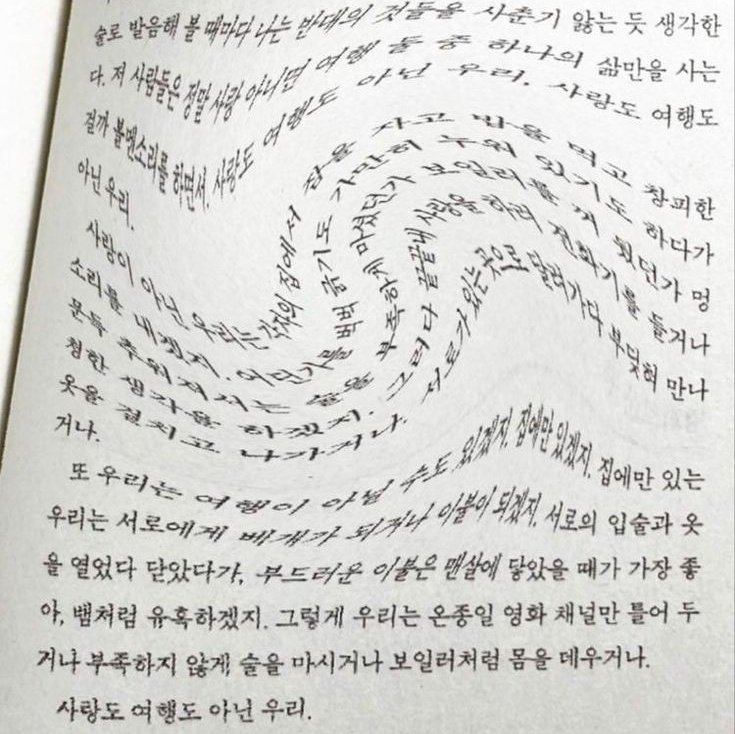 술로 발음해 볼 때마다 나는 반대의 것들을 사춘기 앓는 듯 생각한
다. 저 사람들은 정말 사랑 아니면 여행 둘 중 하나의 삶만을 사는
걸까 볼멘소리를 하면서. 사랑도 여행도 아닌 우리. 사랑도 여행도
아닌 우리.
사랑이 아닌 우리는 각자의 집에서 잠을 자고 밥을 먹고 창피한
소리를 내겠지. 어딘가를 벅벅 긁기도 가만히 누워 있기도 하다가
문득 추워져서는 술을 부족하게 마셨던가 보일러를 꺼 뒀던가 멍
청한 생각을 하겠지. 그러다 끝끝내 사랑을 하러 전화기를 들거나
옷을 걸치고 나가거나. 서로가 있는 곳으로 달려가다 부딪혀 만나
거나.
또 우리는 여행이 아닐 수도 있겠지. 집에만 있겠지. 집에만 있는
우리는 서로에게 베개가 되거나 이불이 되겠지. 서로의 입술과 옷
을 열었다 닫았다가, 부드러운 이불은 맨살에 닿았을 때가 가장 좋
아, 뱀처럼 유혹하겠지. 그렇게 우리는 온종일 영화 채널만 틀어 두
거나 부족하지 않게 술을 마시거나 보일러처럼 몸을 데우거나.
사랑도 여행도 아닌 우리.